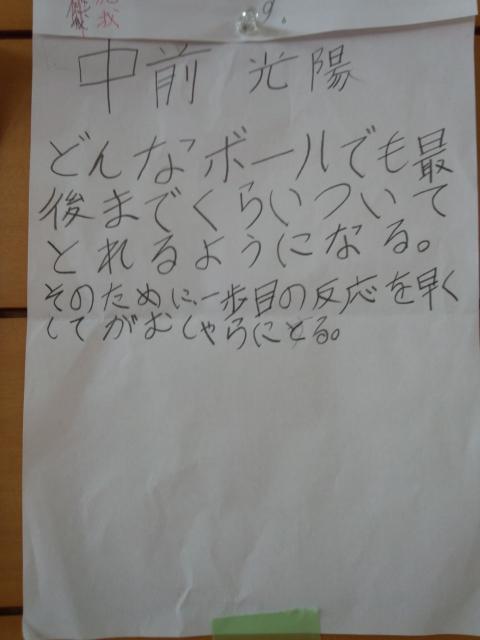 中前 光陽
どんなボールでも最
後までくらいついて
とれるようになる。
そのために、一歩目の反応を早く
してがむしゃらにとる。